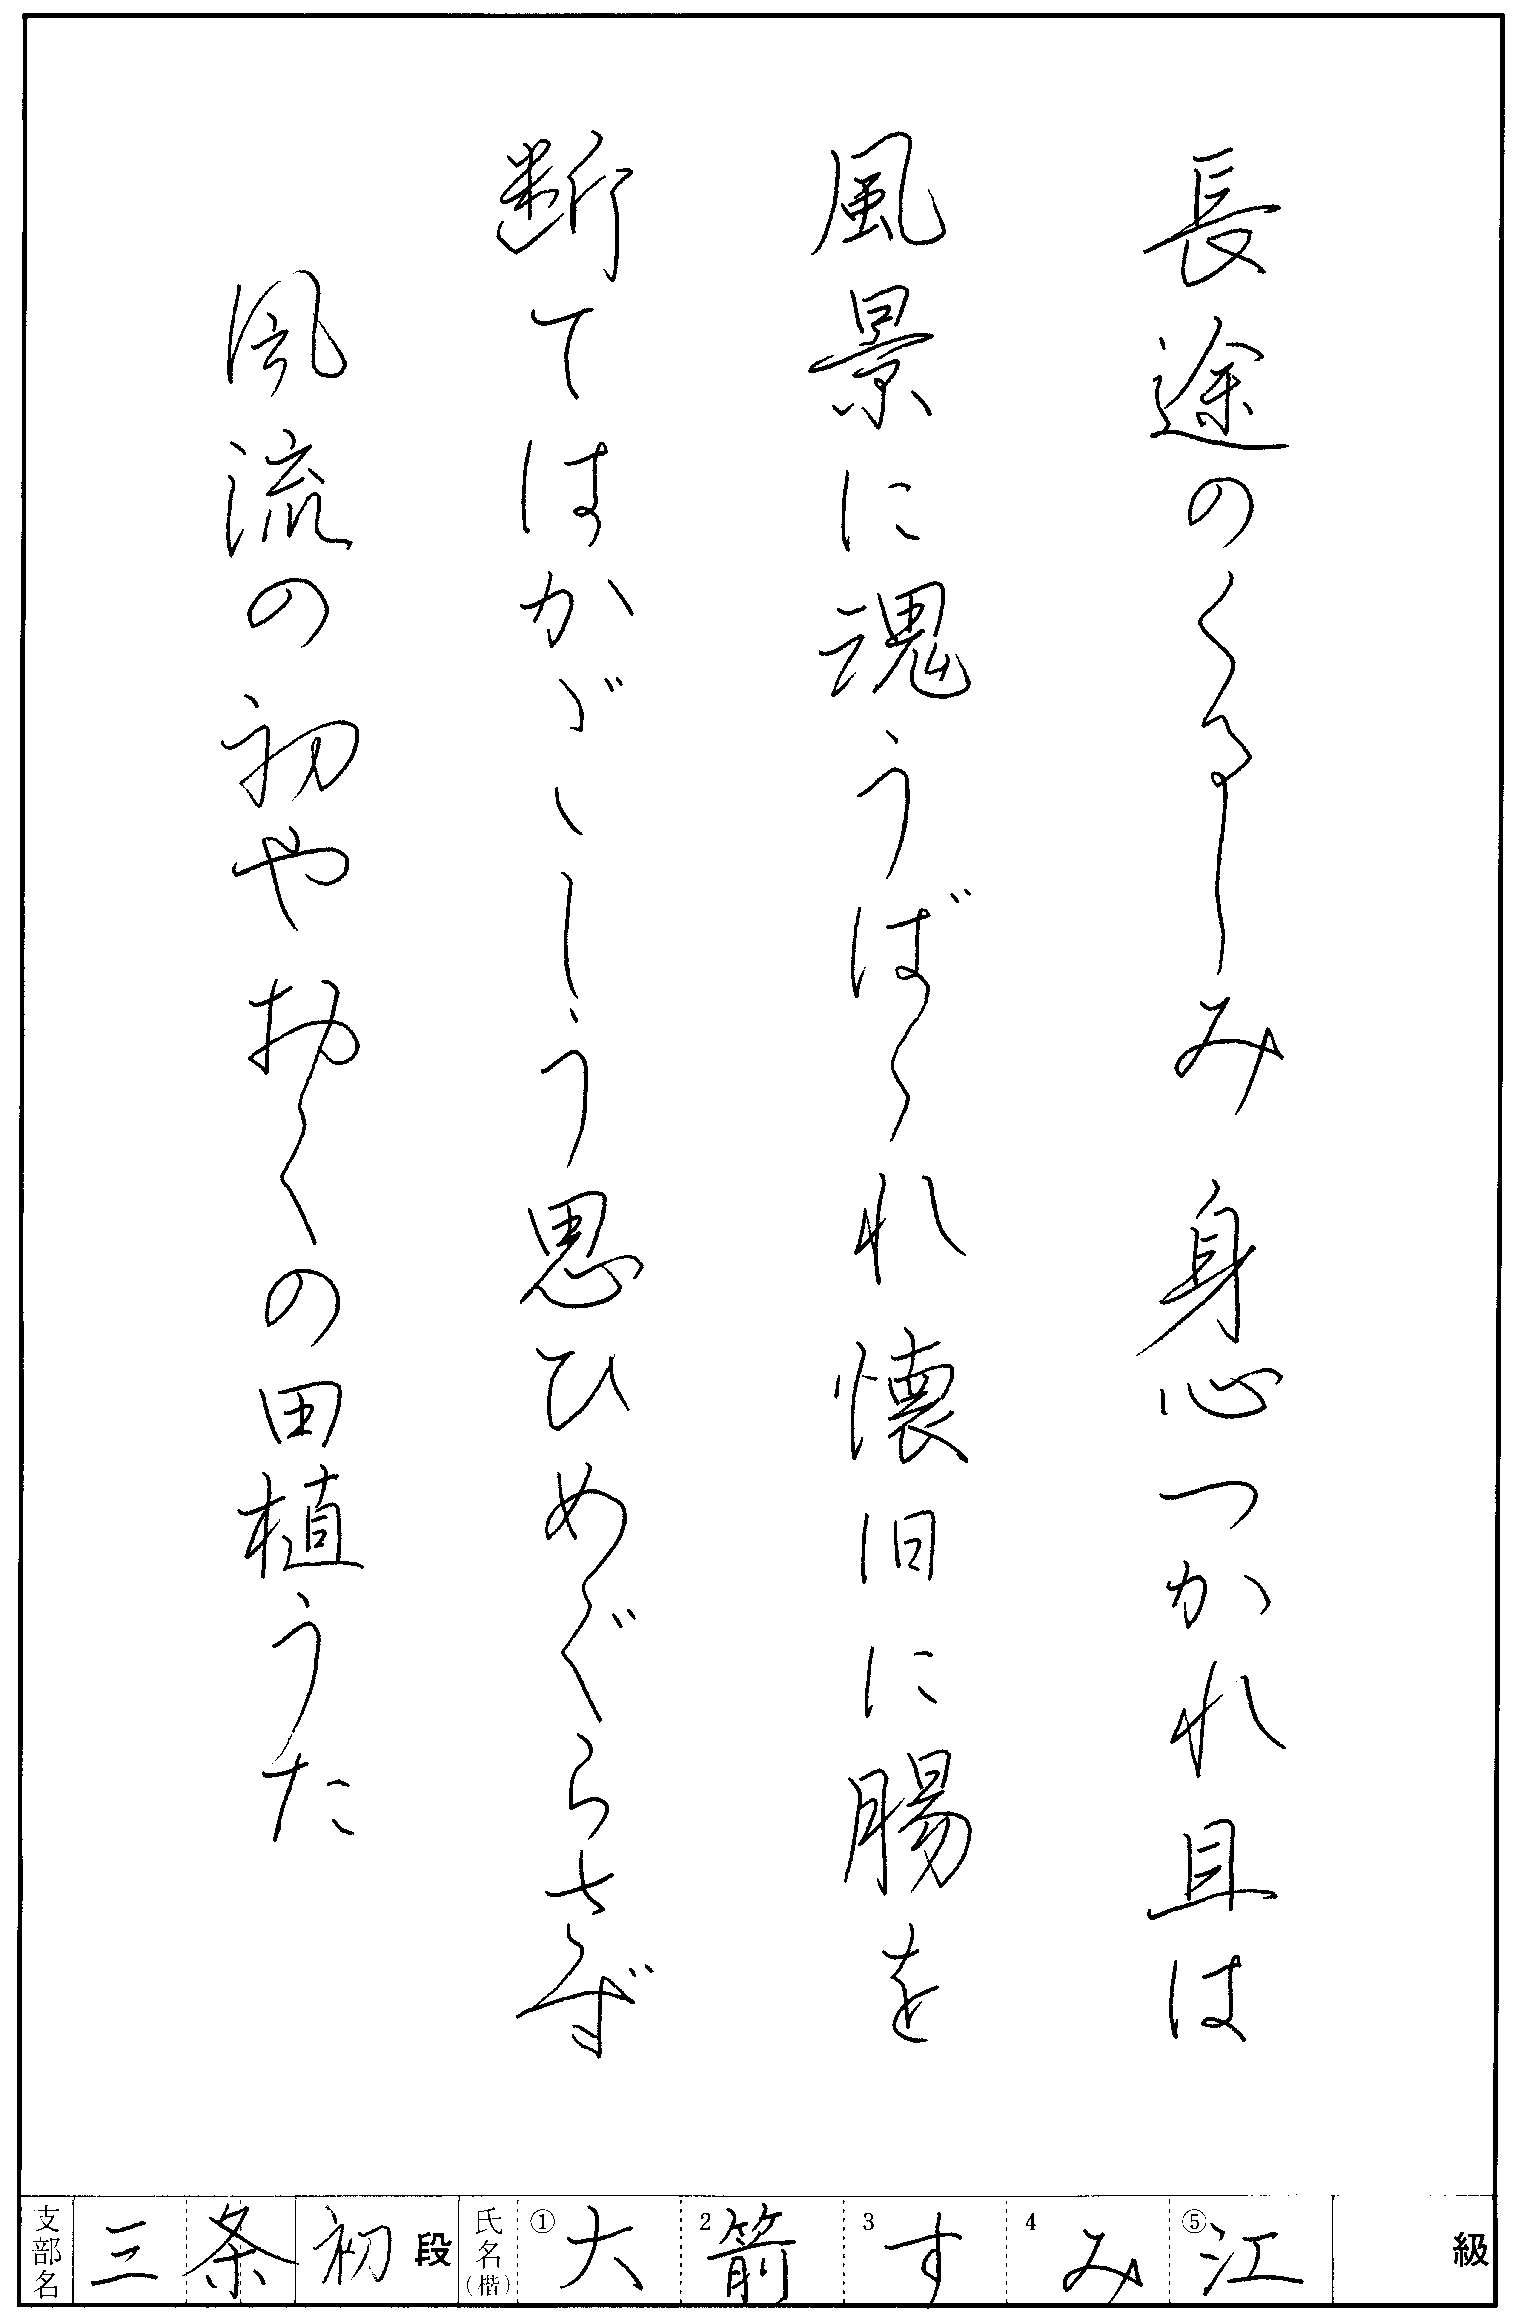 長途のくるしみ身心つかれ且は
風景に魂うばゝれ懐旧に腸を
断てはかゞゝしう思ひめぐらさず
風流の初やおくの田植うた
支部名 三条 初段 氏名(楷) ①大 2箭 3す 4み ⑤江 級